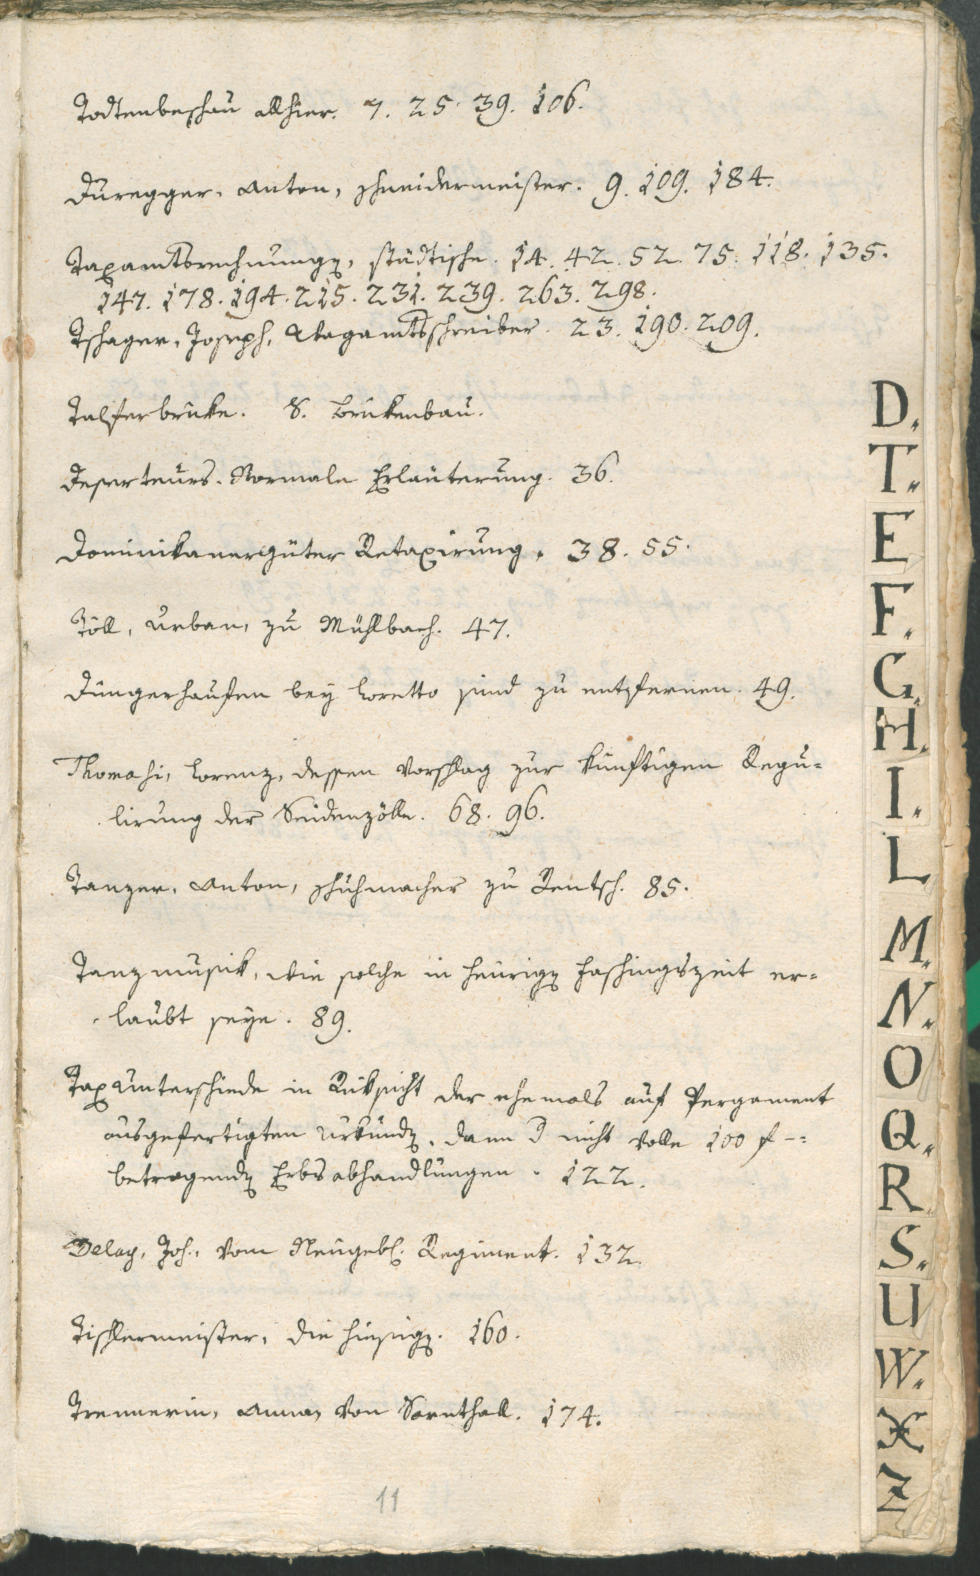 Todtenbeschau allhier. 7. 25. 39. 106.
Duregger, Anton, Schneidermeister. 9. 109. 184.
Taxamtsrechnungen, städtische. 14. 42. 52. 75. 118. 135.
147. 178. 194. 215. 231. 239. 263. 298.
Tschager, Joseph, Waagamtsschreiber. 23. 190. 209.
Talferbrüke. S. Brükenbau.
Deserteurs-Normale Erläuterung. 36.
Dominikanergüter Retaxirung. 38. 55.
Töll, Urban, zu Mühlbach. 47.
Düngerhaufen bey Loretto sind zu entfernen. 49.
Thomasi, Lorenz, dessen Vorschlag zur künftigen Regu=
lirung der Seidenzölle. 68. 96.
Tanzer, Anton, Schuhmacher zu Rentsch. 85.
Tanzmusik, wie solche in heuriger Faschingszeit er=
laubt seye. 89.
Tax Unterschiede in Rüksicht der ehemals auf Pergament
ausgefertigten Urkunden, dann nicht volle 100 f
betragenden Erbsabhandlungen. 122.
Delay, Joh., vom Neugeb. Regiment. 132.
Tischlermeister, die hiesigen. 160.
Trennerin, Anna, von Sarnthall. 174.
11
D.
T.
E
F.
G.
H.
I.
L
M.
N.
O
Q.
R.
S.
U
W.
X
Z